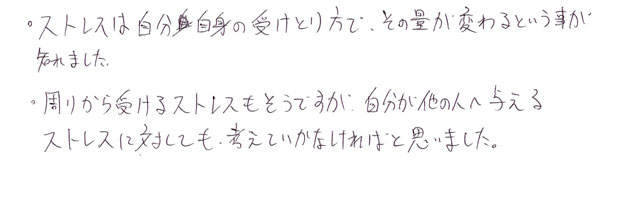 ・ストレスは自分自身の受けとり方で、その量が変わるという事が
知れました。
・周りから受けるストレスもそうですが、自分が他の人へ与える
ストレスに対しても、考えていかなければと思いました。